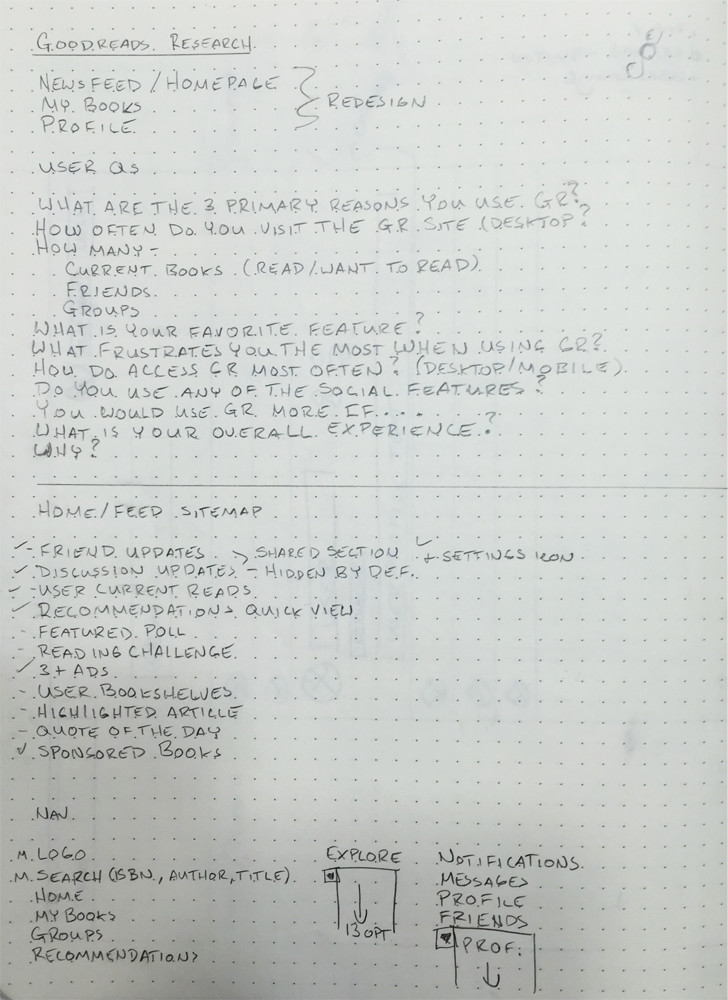 GOODREADS RESEARCH
NEWSFEED / HOMEPAGE
MY BOOKS
PROFILE
} REDESIGN
USER QS
WHAT ARE THE 3 PRIMARY REASONS YOU USE GR?
HOW OFTEN DO YOU VISIT THE GR SITE (DESKTOP?
HOW MANY -
CURRENT BOOKS (READ/WANT TO READ)
FRIENDS
GROUPS
WHAT IS YOUR FAVORITE FEATURE?
WHAT FRUSTRATES YOU THE MOST WHEN USING GR?
HOW DO ACCESS GR MOST OFTEN? (DESKTOP/MOBILE)
DO YOU USE ANY OF THE SOCIAL FEATURES?
YOU WOULD USE GR MORE IF....
WHAT IS YOUR OVERALL EXPERIENCE?
WHY?
HOME/FEED SITEMAP
✓ - FRIEND UPDATES > SHARED SECTION ✓ + SETTINGS ICON
✓ DISCUSSION UPDATES - HIDDEN BY DEF.
✓ - USER CURRENT READS
✓ RECOMMENDATIONS QUICK VIEW
- FEATURED POLL
- READING CHALLENGE
✓ 3+ ADS
- USER BOOKSHELVES
- HIGHLIGHTED ARTICLE
- QUOTE OF THE DAY
✓ SPONSORED BOOKS
NAV
M. LOGO
M. SEARCH (ISBN, AUTHOR, TITLE)
HOME
MY BOOKS
GROUPS
RECOMMENDATIONS
EXPLORE
13 OPT
NOTIFICATIONS
MESSAGES
PROFILE
FRIENDS
PROF: